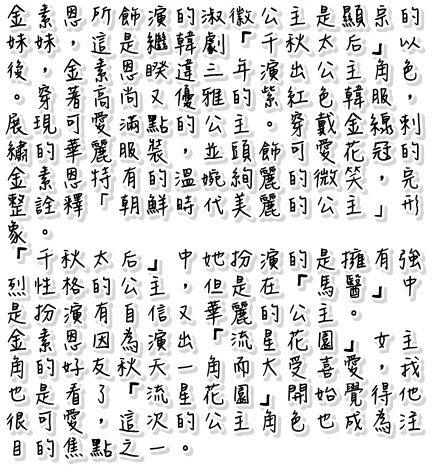 金素恩所飾演的淑徽公主是顯宗的
妹妹，這是繼韓劇「千秋太后」以
後，金素恩睽違三年演出公主角色
。穿著高尚又優雅的紫紅色韓服，
展現可愛滿點的公主。穿戴金線刺
繡的華麗服裝，並頭飾可愛花冠的
金素恩特有的溫婉絢麗的微笑，完
整詮釋「朝鮮時代美麗的公主」形
象。
「千秋太后」中，她扮演的是擁有強
烈性格的公主，但是在「馬醫」中
是扮演有自信又華麗的公主。
金素恩因為演出「流星花園」女主
角的好友秋天一角而大受喜愛，找他
也是看了「流星花園」開始覺得他
很可愛，這次的公主角色也成為注
目的焦點之一。